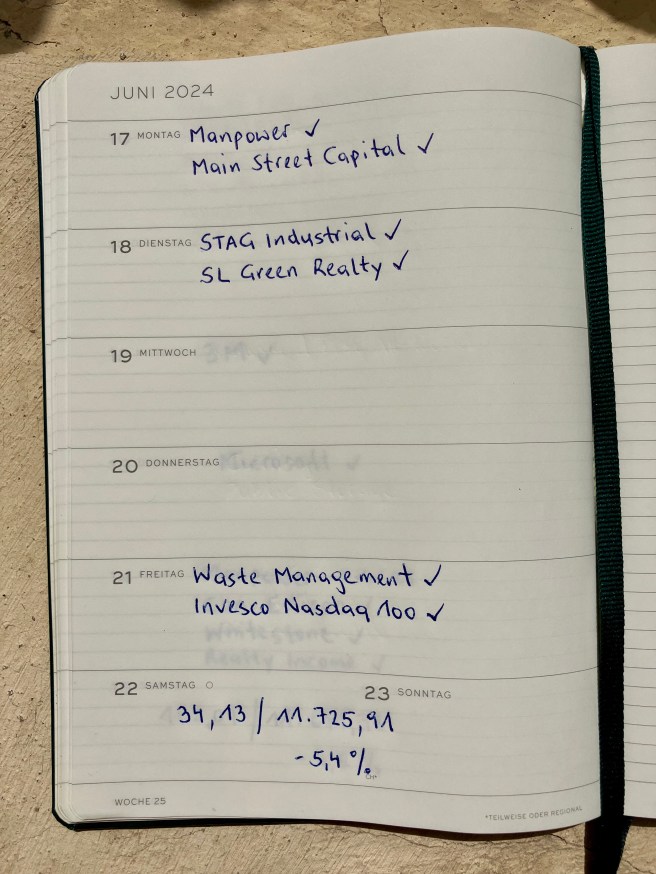 JUNI 2024
17 MONTAG Manpower ✓
Main Street Capital ✓
18 DIENSTAG STAG Industrial ✓
SL Green Realty ✓
19 MITTWOCH 3M ✓
20 DONNERSTAG Microsoft ✓
21 FREITAG Waste Management ✓
Invesco Nasdaq 100 ✓
Whitestone ✓
Realty Income ✓
22 SAMSTAG 23 SONNTAG
34,13 / 11.725,91
-5,4 %
WOCHE 25
*TEILWEISE ODER REGIONAL